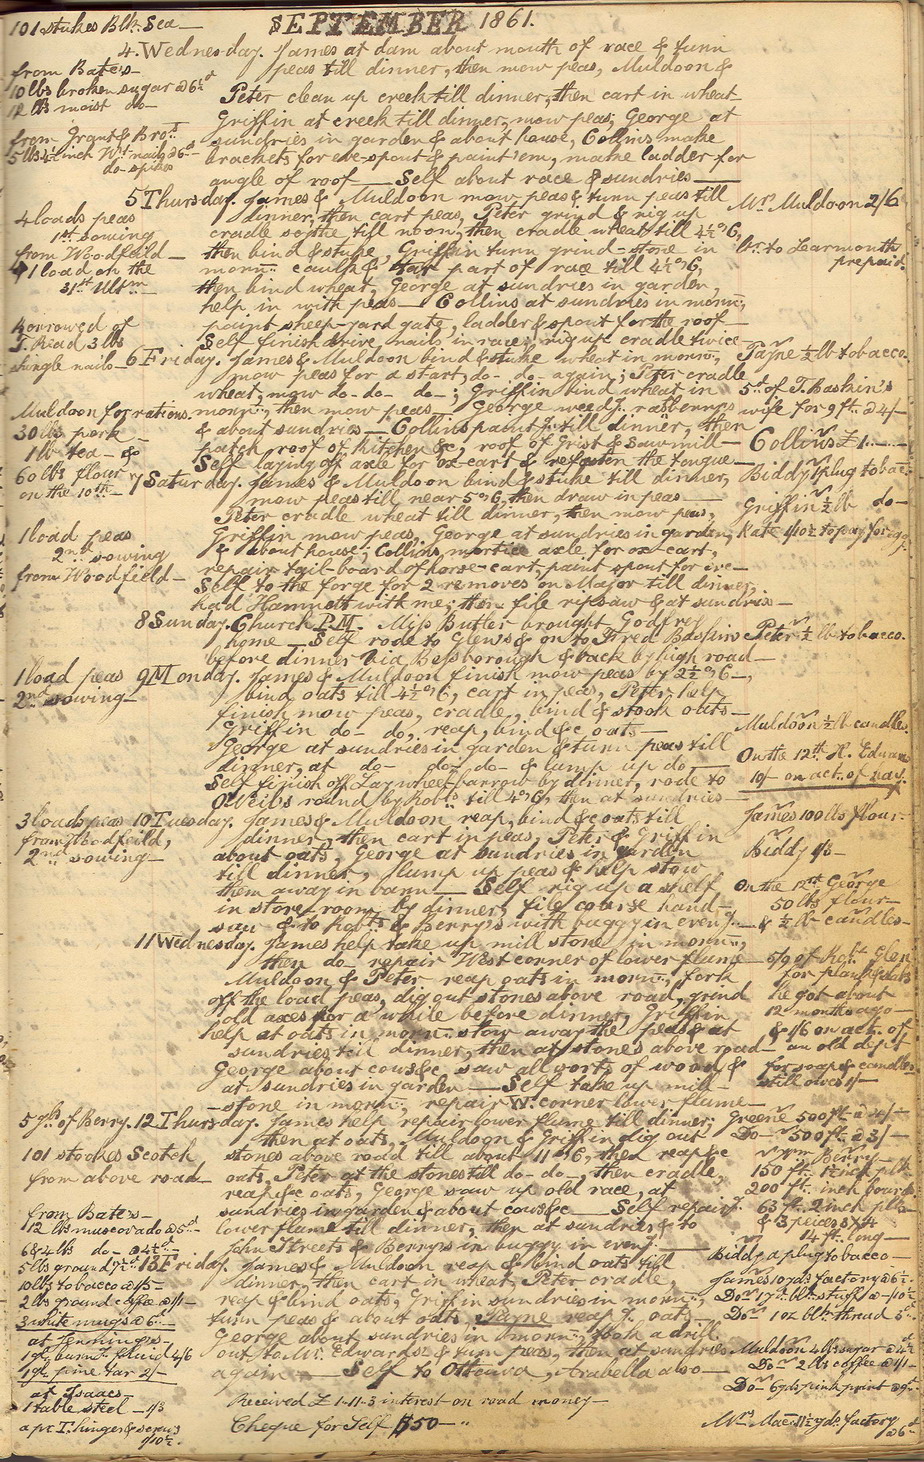 SEPTEMBER 1861.
101 stukes Blk. Sea
4. Wednesday. James at dam about mouth of race & turn
peas till dinner, then mow peas, Muldoon &
from Bate's
10 lbs broken sugar @ 6½d
12 lbs moist do
Peter clean up creek till dinner, then cart in wheat
Griffin at creek till dinner, mow peas, George at
from Grant & Bros.
sundries in garden & about house, Collins make
brackets for eve-spout & paint 'em, make ladder for
do spikes
angle of roof — Self about race & sundries
5 Thursday. James & Muldoon mow peas & turn peas till
Mr. Muldoon 2/6
4 loads peas
dinner, then cart peas, Peter grind & rig up
1st sowing
cradle scythe till noon, then cradle wheat till 4½ o'6,
from Woodfeild
then bind & stuke, Griffin turn grind-stone in
to Learmonth
prepaid.
1 load on the
morng. caulk & tar part of race till 4½ o'6,
31st Ultm
then bind wheat, George at sundries in garden,
help in with peas — Collins at sundries in morng.,
Borrowed of
paint sheep-yard gate, ladder & spout for the roof
T. Read 3 lbs
Self finish drive nails in race, rig up cradle twice
shingle nails
6 Friday. James & Muldoon bind & stuke wheat in morng.,
Payne ½ lb tobacco.
mow peas for a start, do- do- again; Peter cradle
wheat, mow do- do- do-; Griffin bind wheat in
5th of T. Baskin's
Muldoon for rations
morng., then mow peas — George weedg. rasberrys
wife for 9 ft. @ 4/-
30 lbs pork
& about sundries — Collins paintg. till dinner, then
1 lb tea - &
patch roof of kitchen &c, roof of Grist & Sawmill
Collins £1
60 lbs flour
Self laying off axle for ox-cart & refasten the tongue
on the 10th
7 Saturday. James & Muldoon bind & stuke till dinner,
Biddy 1 plug tobac.
mow peas till near 5 o'6, then draw in peas
Peter cradle wheat till dinner, then mow peas,
Griffin ½ lb do-
1 load peas
Griffin mow peas, George at sundries in garden
2nd sowing
& about house; Collins, mortice axle for ox-cart,
from Woodfield
repair tail-board of horse-cart, paint spout for eve
Self to the forge for 2 removes on Major till dinner,
had Hamnett with me; then file ripsaw & at sundries
8 Sunday. Church P.M. Miss Butler brought Godfrey
home — Self rode to Glew's & on to Fred Baskins
Peter ½ lb tobacco.
before dinner via Bessborough & back by high road
1 load peas
9 Monday. James & Muldoon finish mow peas by 2½ o'6,
2nd sowing
bind oats till 4½ o'6, cart in peas, Peter help
finish mow peas, cradle, bind & stook oats
Griffin do- do, reap, bind &c oats
Muldoon ½ lb candles
George at sundries in garden & turn peas till
dinner, at do- do- do- & lump up do
On the 12th H. Edwar
Self finish off Lay wheel-barrow by dinner, rode to
10/- on act. of
O'Neils round by Robts. till 4 o'6, then at sundries
3 loads peas
10 Tuesday. James & Muldoon reap, bind &c oats till
James 100 lbs flour
from Woodfeild,
dinner, then cart in peas, Peter & Griffin
2nd sowing
about oats, George at sundries in garden
Biddy 1/3
till dinner, lump up peas & help stow
them away in barn — Self rig up a shelf
On the 12th George
in store-room by dinner, file coarse hand-
50 lbs flour
saw & to Robts. & Berry's with buggy in eveng.
& ½ lb candles
11 Wednesday. James help take up mill stone in morng.,
then do- repair West corner of lower flume
5/9 of Robt. Glen
Muldoon & Peter reap oats in morng., fork
for plank & slabs
off the load peas, dig out stones above road, grind
he got about
old axes for a while before dinner, Griffin
12 months ago
help at oats in morng. stow away the peas & at
& 1/6 on act. of
sundries till dinner, then at stones above road
an old dept
George about cows &c, saw all sorts of wood &
for soap & candles
at sundries in garden — Self take up mill-
still owes 1/-
stone in morng., repair W. corner lower flume
5 of Berry.
12 Thursday. James help repair lower flume till dinner,
Greene 500 ft. @ 4/-
then at oats, Muldoon & Griffin dig out
Do- 500 ft. @ 3/-
101 stookes Scotch
stones above road till about 11 o'6, then reap &c
Wm Berry
from above road
oats, Peter at the stones till do-do, then cradle,
150 ft. 1½ inch plk
reap &c oats, George saw up old race, at
200 ft. inch boards
from Bate's
sundries in garden & about cows &c — Self repairg.
63 ft. 2 inch plk
12 lbs muscovado @ 5d
lower flume till dinner, then at sundries & to
& 3 peices 3x4
6 & 4 lbs do- @ 4½d
John Streets & Berry's in buggy in eveng.
14 ft. long
13 Friday. James & Muldoon reap & bind oats till
Biddy a plug tobacco
10 lbs tobacco @ 1/5
dinner, then cart in wheat, Peter cradle,
James 10 yds factory @ 6½
2 lbs ground coffee @ 1/-
reap & bind oats, Griffin sundries in morng.,
3 white mugs @ 6
turn peas & about oats, Payne reap g. oats
Do- 1 oz blk. thread 5
at Jennings
George about sundries in morng., took a drill
1 gl. burng. fluid 4/6
out to Mr. Edwards & turn peas, then at sundries
Muldoon 4 lbs sugar @ 4½
1 gl. pine tar 2/-
again — Self to Ottawa, Arabella also
Do- 2 lbs coffee @ 1/-
at Isaacs
Do- 6 yds pink print @ 9d
1 table steel - 1/3
Received £1-11-3 interest on road money
a pr. T. hinges & screws
1/10½.
Cheque for Self $50
Mrs Mac. 11½ yds. factory
@ 6